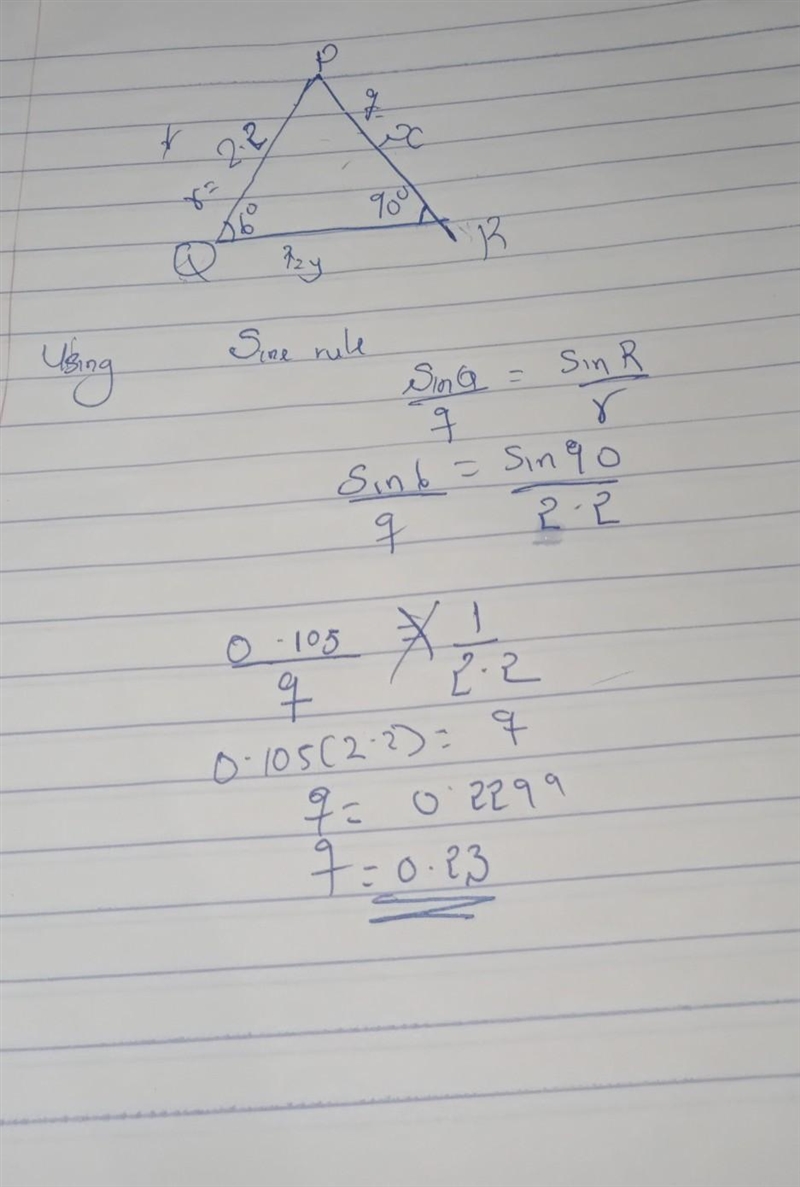 P
q
x
r
2.2
r=
6°
90°
Q
R
y
Using Sine rule
Sin Q / q = Sin R / r
Sin 6 / q = Sin 90 / 2.2
0.105 / q = 1 / 2.2
0.105(2.2) = q
q = 0.2299
q = 0.23